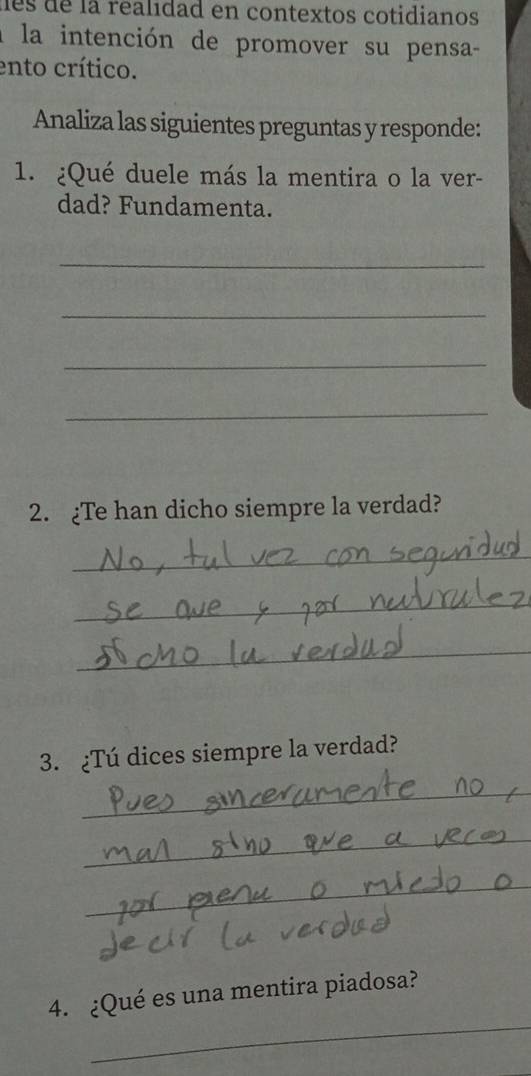 de la realidad en contextos cotidianos
la intención de promover su pensa-
ento crítico.
Analiza las siguientes preguntas y responde:
1. ¿Qué duele más la mentira o la ver-
dad? Fundamenta.
2. ¿Te han dicho siempre la verdad?
No, tal vez con seguridad
se que y por naturulez
la verdad
3. ¿Tú dices siempre la verdad?
Pues sinceramente no,
mal sino que a veces
por pena o miedo o
decir la verdad
4. ¿Qué es una mentira piadosa?